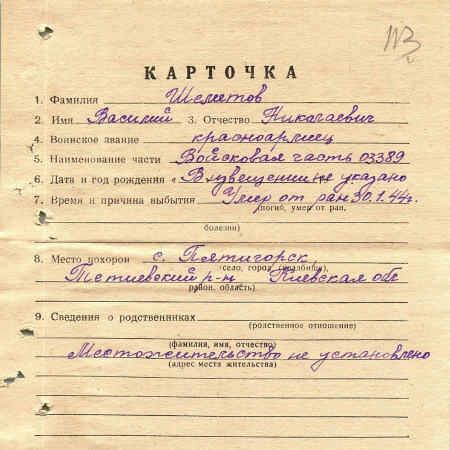 113
КАРТОЧКА
1. Фамилия Шеметов
2. Имя Василий 3. Отчество Николаевич
4. Воинское звание красноармеец
5. Наименование части Войсковая часть 03389
6. Дата и год рождения « В извещении не указано
7. Время и причина выбытия Умер от ран 30.1.44г.
(погиб, умер от ран,
болезни)
8. Место похорон с. Пятигорск,
село, город (кладбище),
Тетиевский р-н Киевская обл
район, область)
9. Сведения о родственниках
(родственное отношение)
(фамилия, имя, отчество)
Местожительство не установлено
(адрес места жительства)